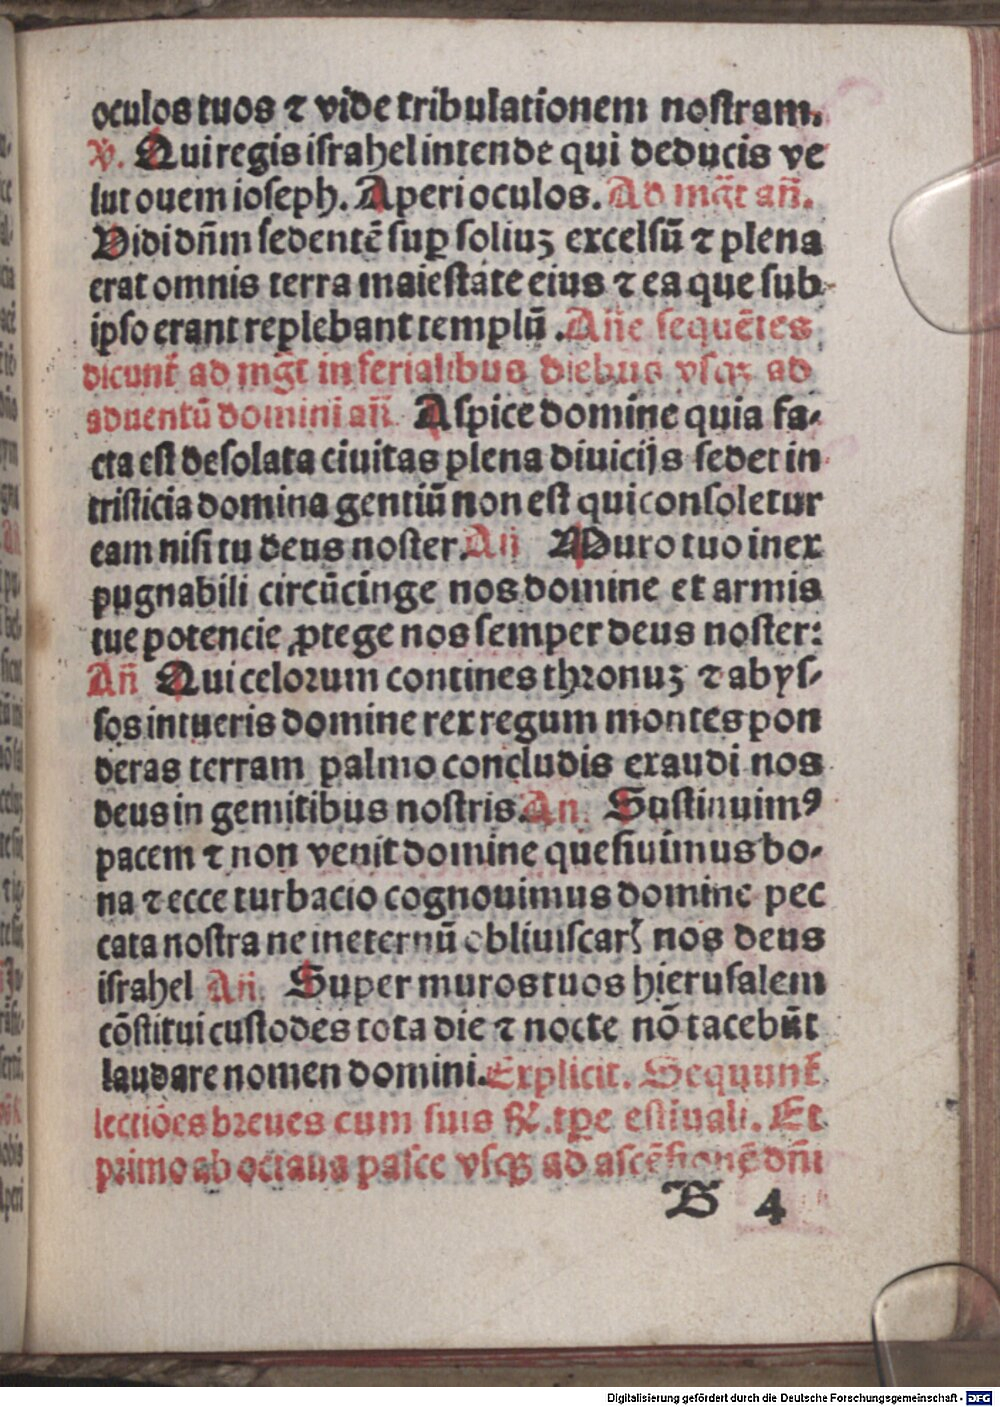 oculos tuos ⁊ vide tribulationem noſtram.
V. Qui regis iſrahel intende qui deducis ve
lut ouem ioſeph. Aperi oculos. Ad mg̃t añ.
Vidi dñm ſedentē ſuꝑ ſoliuꝫ excelſū ⁊ plena
erat omnis terra maieſtate eius ⁊ ea que ſub
ipſo erant replebant templū . Añe ſequētes
dicunt᷑ ad mg̃t in ferialibus diebus vſqꝫ ad
aduentū domini añ Aſpice domine quia fa⸗
cta eſt deſolata ciuitas plena diuicijs ſedet in
triſticia domina gentiū non eſt qui conſoletur
eam niſi tu deus noſter. Añ Muro tuo inex
pugnabili circūcinge nos domine et armis
tue potencie ꝓtege nos ſemper deus noſter:
Añ Qui celorum contines thronuꝫ ⁊ abyſ⸗
ſos intueris domine rex regum montes pon
deras terram palmo concludis exaudi nos
deus in gemitibus noſtris. An. Suſtinuimꝰ
pacem ⁊ non venit domine queſiuimus bo⸗
na ⁊ ecce turbacio cognouimus domine pec
cata noſtra ne ineternū obliuiſcar᷑ nos deus
iſrahel Añ. Super muros tuos hieruſalem
cōſtitui cuſtodes tota die ⁊ nocte nō tacebūt
laudare nomen domini. Explicit. Sequunt᷑
lectiōes breues cum ſuis ℟. tꝑe eſtiuali. Et
primo ab octaua paſce vſqꝫ ad aſcēſionē dñi
B 4
Digitalisierung gefördert durch die Deutsche Forschungsgemeinschaft - DFG